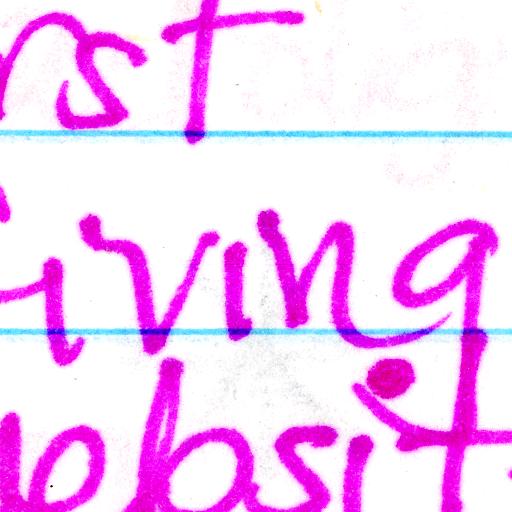 rst
iving
ebsit